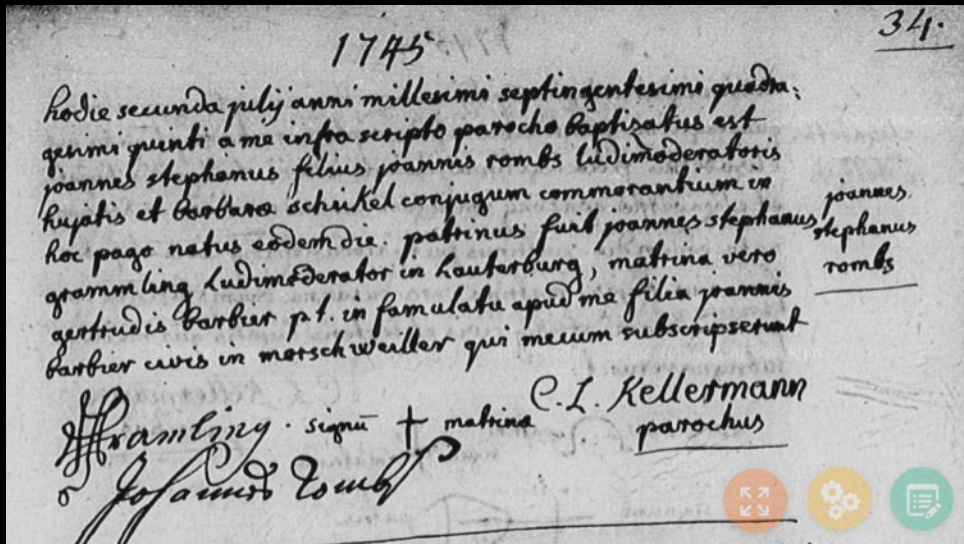 34.
1745
hodie secunda julij anni millesimi septingentesimi quadra:
gesimi quenti a me infra scripto parocho baptisatus est
joannes stephanus filius joannis rombs ludimoderatoris
hujatis et barbara schikel conjugum commorantium in
hoc pago natus eodem die. patrinus fuit joannes stephanus
grammling Ludimoderator in Lauterburg, matrina vero
gertrudis barbier p.t. in famulatu apud me filia joannis
barbier civis in morschweiller qui mecum subscripserunt
joannes
stephanus
rombs
C. L. Kellermann
parochus
signū + matrina
Johannes Rombs